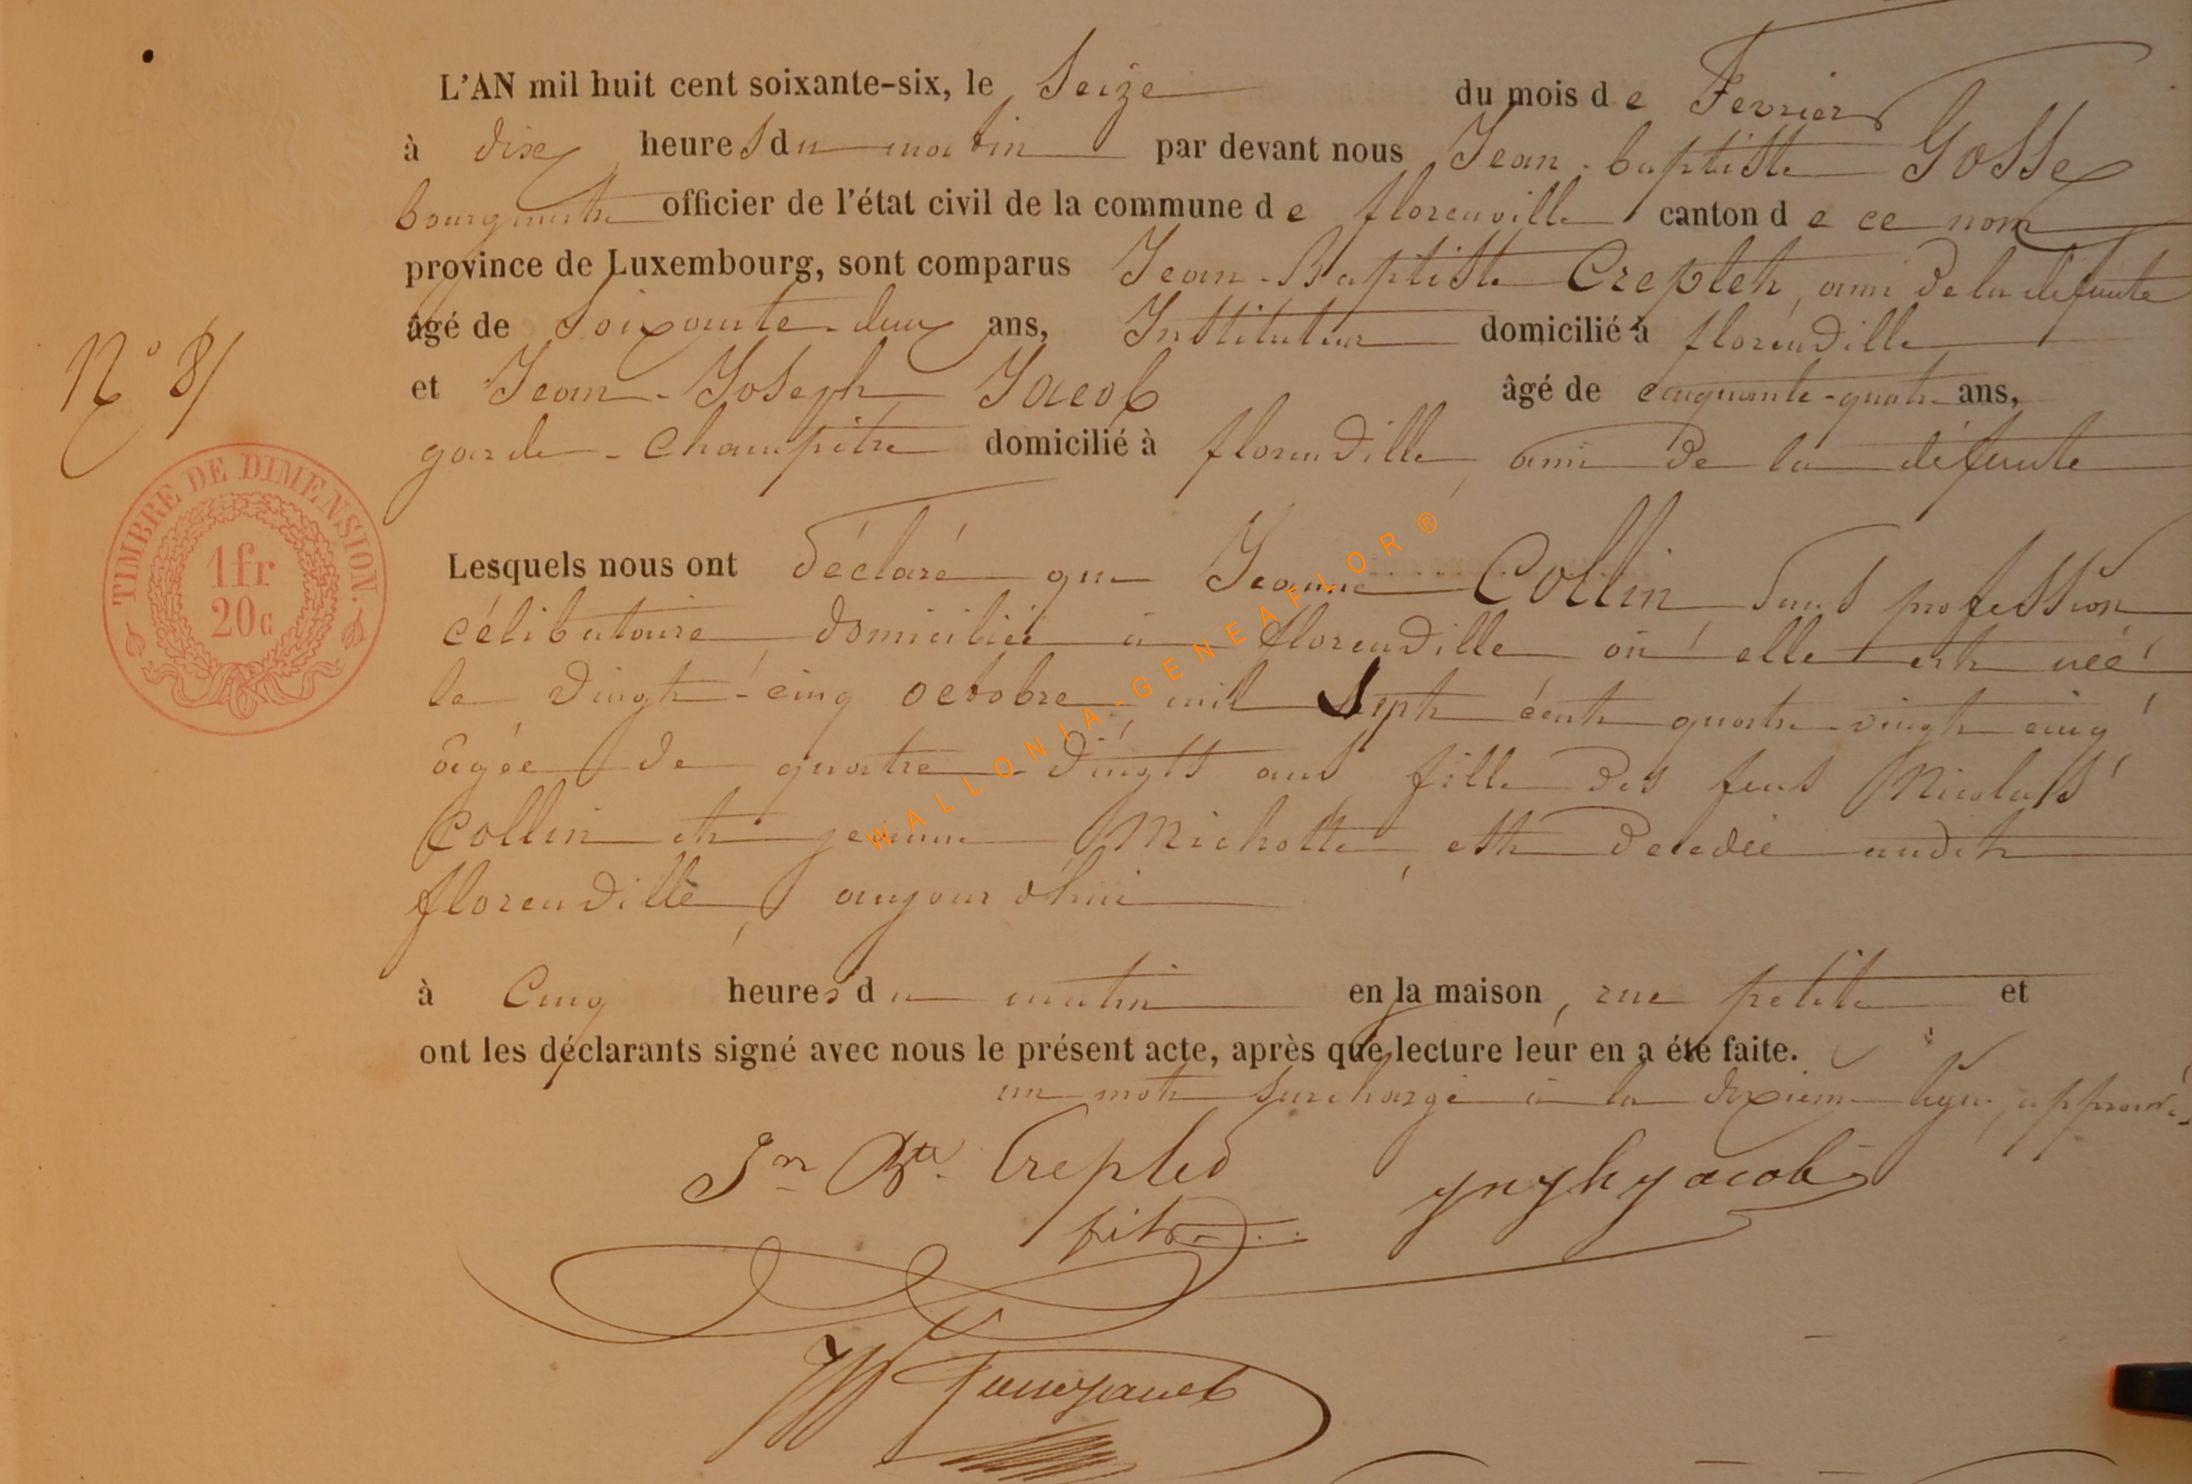 L'AN mil huit cent soixante-six, le Seize du mois de Fevrier
à dix heures du matin par devant nous Jean-baptiste Gosse
bourgmestre officier de l'état civil de la commune de florenville canton de ce nom
province de Luxembourg, sont comparus Jean-Baptiste Creplet, ami de la défunte
âgé de Soixante-deux ans, Instituteur domicilié à florenville
et Jean-Joseph Jacob âgé de cinquante-quatre ans,
garde-champêtre domicilié à florenville, ami de la défunte
N° 8/
TIMBRE DE DIMENSION.
1fr
20c
Lesquels nous ont déclaré que Jeanne Collin, Sans profession,
célibataire, domiciliée à florenville où elle est née
le vingt-cinq octobre mil Sept cent quatre-vingt cinq
âgée de quatre-vingts ans, fille des feus Nicolas
Collin et jeanne Michotte, est décédée audit
florenville, aujourd'hui
à Cinq heures du matin en la maison, rue petite et
ont les déclarants signé avec nous le présent acte, après que lecture leur en a été faite.
un mot surchargé à la dixième ligne, approuvé
Jn Bte Creplet
jnjhjacob
WALLONIA-GENEAFLOR®